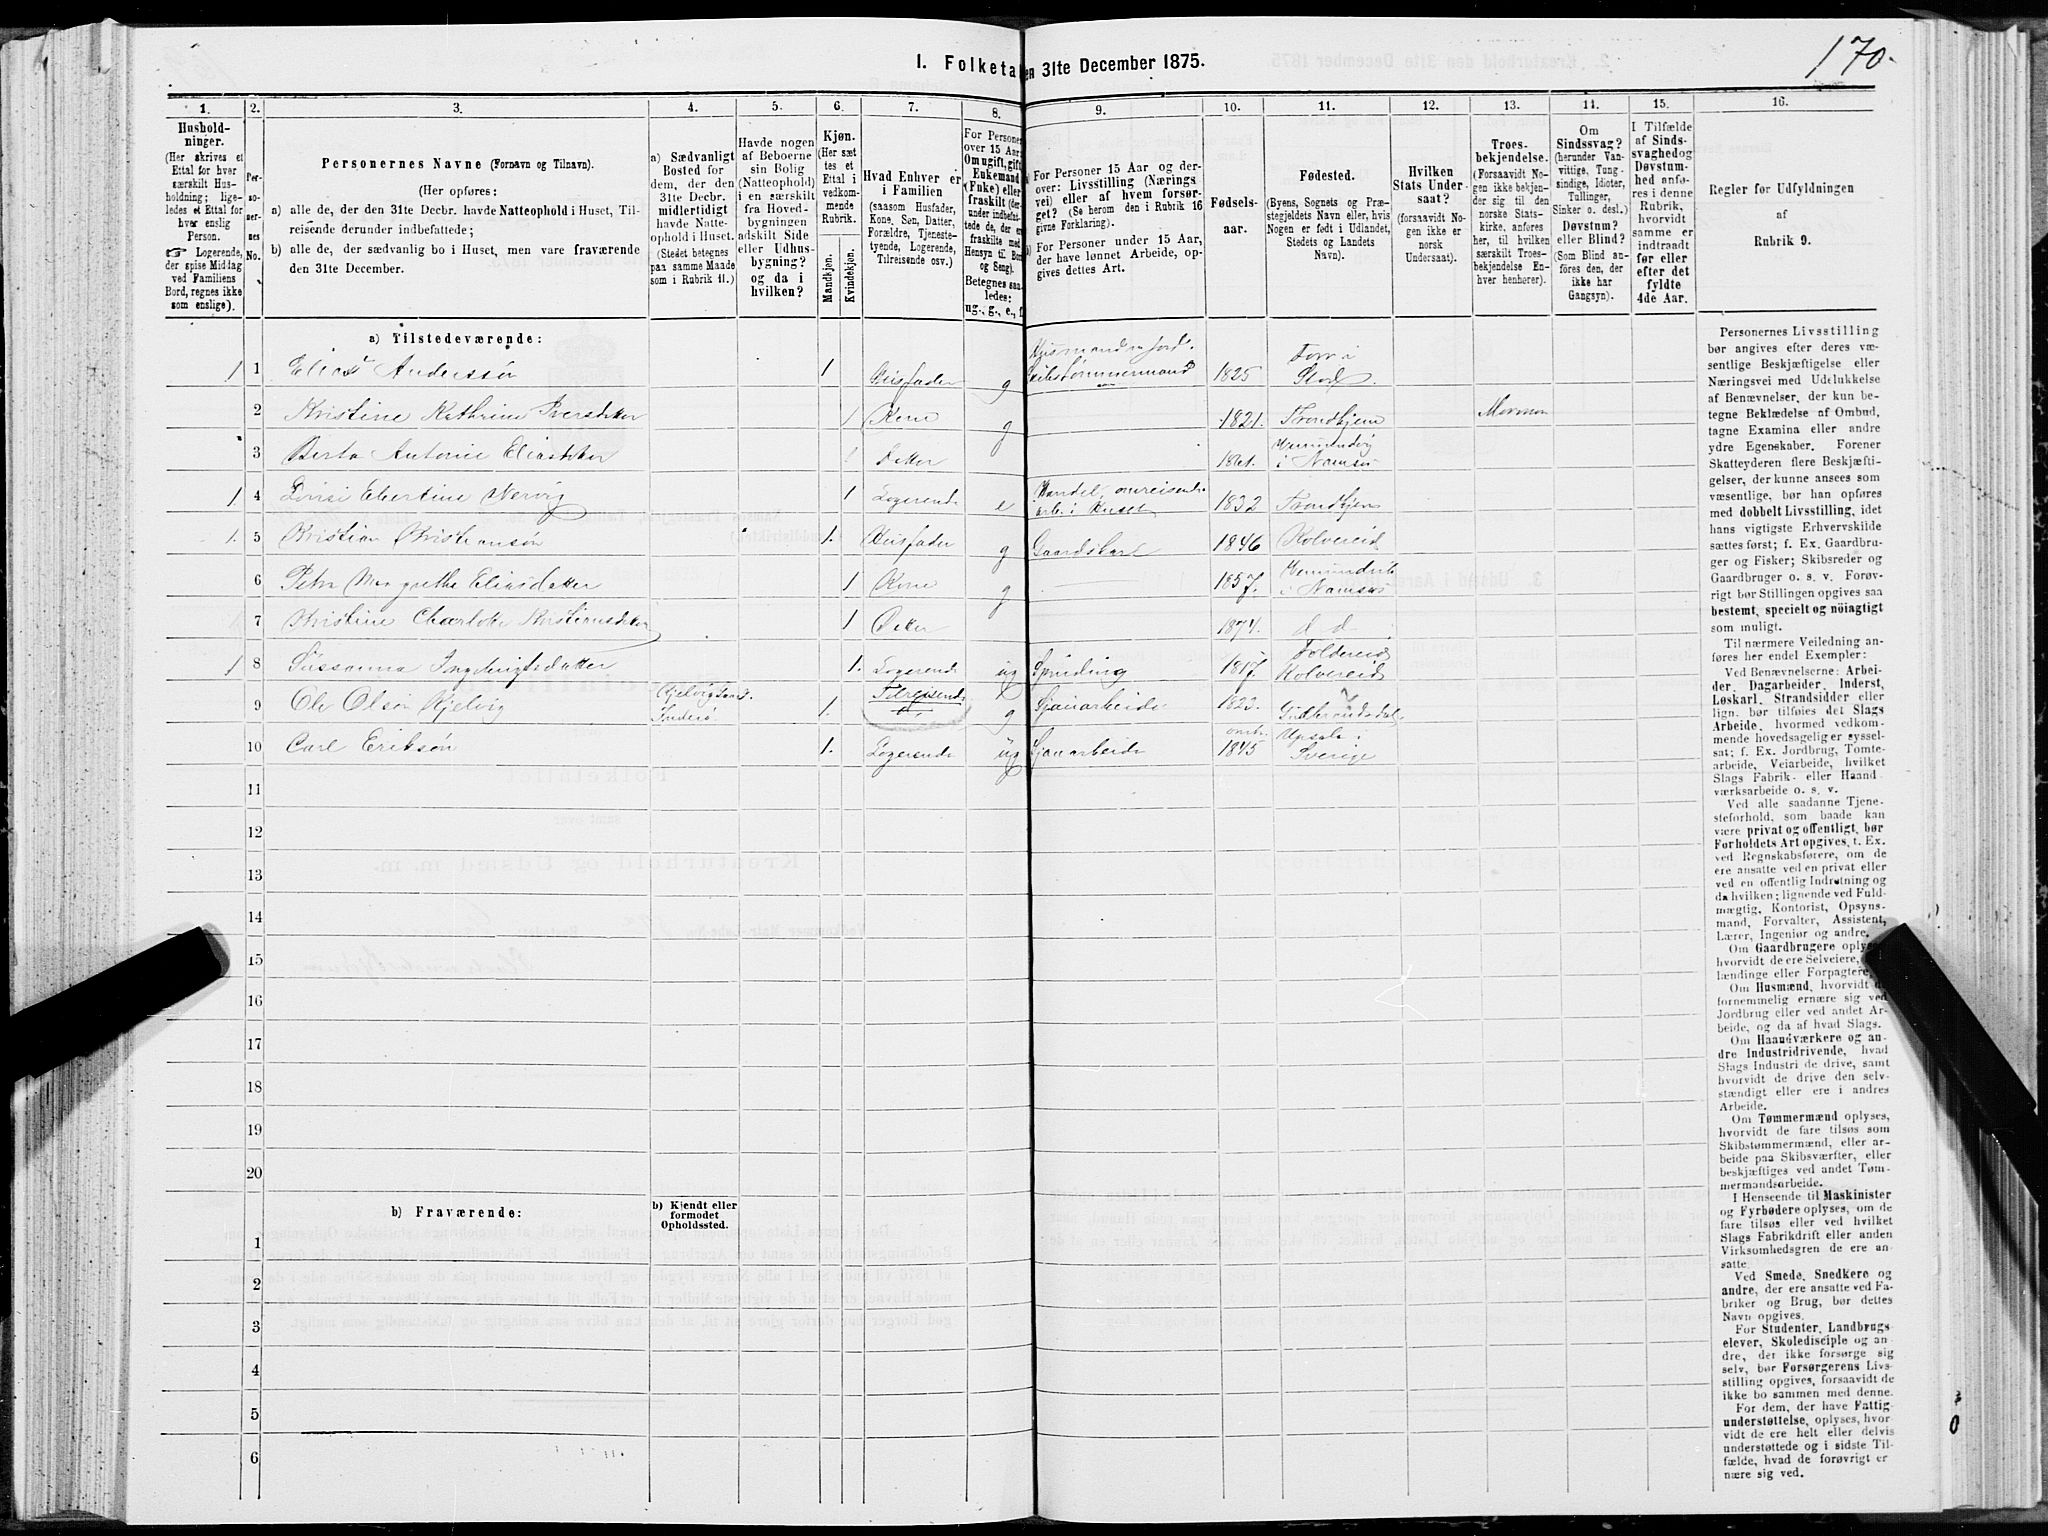 170.
I. Folketa
en 31te December 1875.
1. 2. 3. 4. 5. 6. 7. 8. 9. 10. 11. 12. 13. 14. 15. 16.
Hushold-
ninger.
(Her skrives et
Ettal for hver
særskilt Hus-
holdning; lige-
ledes et Ettal for
hver enslig
Person.
☞ Logerende,
der spise Middag
ved Familiens
Bord, regnes ikke
som enslige).
Per-
so-
ner-
nes
No.
Personernes Navne (Fornavn og Tilnavn).
(Her opføres:
a) alle de, der den 31te Decbr. havde Natteophold i Huset, Til-
reisende derunder indbefattede;
b) alle de, der sædvanlig bo i Huset, men vare fraværende
den 31te December.
a) Sædvanligt
Bosted for
dem, der den
31te Decbr.
midlertidigt
havde Natte-
ophold i Huset.
(Stedet betegnes
paa samme Maade
som i Rubrik 11.)
Havde nogen
af Beboerne
sin Bolig
(Natteophold)
i en særskilt
fra Hoved-
bygningen
adskilt Side
eller Udhus-
bygning?
og da i
hvilken?
Kjøn.
(Her sæt
tes et
Ettal i
vedkom-
mende
Rubrik.
Mandkjøn.
Kvindekjøn.
Hvad Enhver er
i Familien
(saasom Husfader,
Kone, Søn, Datter,
Forældre, Tjeneste-
tyende, Logerende,
Tilreisende osv.)
For Personer
over 15 Aar:
Om ugift, gift,
Enkemand
(Enke) eller
fraskilt (der-
under indbefat-
tede de, der er
fraskilte med
Hensyn til Bord
og Seng).
Betegnes saa-
ledes:
ug., g., e., f.
For Personer 15 Aar og der-
over: Livsstilling (Nærings
vei) eller af hvem forsør-
get? (Se herom den i Rubrik 16
givne Forklaring).
b) For Personer under 15 Aar,
der have lønnet Arbeide, op-
gives dettes Art.
Fødsels-
aar.
Fødested.
(Byens, Sognets og Præ-
stegjeldets Navn eller, hvis
Nogen er født i Udlandet,
Stedets og Landets
Navn).
Hvilken
Stats Under-
saat?
(forsaavidt No-
gen ikke er
norsk
Undersaat).
Troes-
bekjendelse.
(Forsaavidt No-
gen ikke bekjen-
der sig til den
norske Stats-
kirke, anføres
her, til hvilken
særskilt Troes-
bekjendelse En-
hver henhører).
Om
Sindssvag?
(herunder Van-
vittige, Tung-
sindige, Idioter,
Tullinger,
Sinker o. desl.)
Døvstum?
eller Blind?
(Som Blind an-
føres den, der
ikke har
Gangsyn).
I Tilfælde
af Sinds-
svaghed og
Døvstum-
hed anfø-
res i denne
Rubrik,
hvorvidt
samme er
indtraadt
før eller
efter det
fyldte
4de Aar.
Regler for Udfyldningen
af
Rubrik 9.
a) Tilstedeværende:
1 1 Elias Anderssøn 1 Husfader g Husmand m jord. Skibstømmermand 1825 Forr i Stod
2 Kristine Kathrine Iversdatter 1 Kone g 1821. Trondhjem Mormon
3 Berta Antonie Eliasdatter 1 Datter 1861. i Namsos
1 4 Lovise Ebertine Nervig 1 Logerende e Handel, omreisende arb. i Huset 1832 Trondhjem
1. 5 Kristian Kristiansøn 1. Husfader g Gaardskarl 1846 Kolvereid
6 Petra Margrethe Eliasdatter 1 Kone g 1857. i Namsos
7 Kristine Charlotte Kristiansdatter 1 Datter 1874. d d
1 8 Susanna Ingebrigtsdatter 1. Logerende ug Spinding 1817. Foldereid Kolvereid
9 Ole Olsen Kjelvig Inderø 1. Tilreisende g Sjauarbeide 1823. Gudbrandsdal
10 Carl Eriksøn 1. Logerende ug Sjauarbeide omtr. 1845 Upsala i Sverige
11
12
13
14
15
16
17
18
19
20
b) Fraværende:
b) Kjendt eller
formodet
Opholdssted.
1
2
3
4
5
6
Personernes Livsstilling
bør angives efter deres væ-
sentlige Beskjæftigelse eller
Næringsvei med Udelukkelse
af Benævnelser, der kun be-
tegne Beklædelse af Ombud,
tagne Examina eller andre
ydre Egenskaber. Forener
Skatteyderen flere Beskjæfti-
gelser, der kunne ansees som
væsentlige, bør han opføres
med dobbelt Livsstilling, idet
hans vigtigste Erhvervskilde
sættes først; f. Ex. Gaardbru-
ger og Fisker; Skibsreder og
Gaardbruger o. s. v. Forøv-
rigt bør Stillingen opgives saa
bestemt, specielt og nöiagtigt
som muligt.
Til nærmere Veiledning an-
føres her endel Exempler:
Ved Benævnelserne: Arbei-
der, Dagarbeider, Inderst,
Løskarl, Strandsidder eller
lign. bør tilføies det Slags
Arbeide, hvormed vedkom-
mende hovedsagelig er syssel-
sat; f. Ex. Jordbrug, Tomte-
arbeide, Veiarbeide, hvilket
Slags Fabrik- eller Haand
værksarbeide o. s. v.
Ved alle saadanne Tjene-
steforhold, som baade kan
være privat og offentligt, bør
Forholdets Art opgives, t. Ex.
ved Regnskabsførere, om de
ere ansatte ved en privat eller
ved en offentlig Indretning og
da hvilken; lignende ved Fuld-
mægtig, Kontorist, Opsyns-
mand, Forvalter, Assistent,
Lærer, Ingeniør og andre.
Om Gaardbrugere oplyse
hvorvidt de ere Selveiere,
lændinge eller Forpagtere
Om Husmænd, hvorvidt de
fornemmelig ernære sig ved
Jordbrug eller ved andet Ar-
beide, og da af hvad Slags.
Om Haandværkere og an-
dre Industridrivende, hvad
Slags Industri de drive, samt
hvorvidt de drive den selv-
stændigt eller ere i andres
Arbeide.
Om Tømmermænd oplyses,
hvorvidt de fare tilsøs som
Skibstømmermænd, eller ar-
beide paa Skibsværfter, eller
beskjæftiges ved andet Tøm-
mermandsarbeide.
I Henseende til Maskinister
og Fyrbødere oplyses, om de
fare tilsøs eller ved hvilket
Slags Fabrikdrift eller anden
Virksomhedsgren de ere an-
satte.
Ved Smede, Snedkere og
andre, der ere ansatte ved Fa-
briker og Brug, bør dettes
Navn opgives.
For Studenter, Landbrugs-
elever, Skoledisciple og an-
dre, der ikke forsørge sig
selv, bør Forsørgerens Livs-
stilling opgives, forsaavidt de
ikke bo sammen med denne.
For dem, der have Fattig-
understøttelse, oplyses, hvor-
vidt de ere helt eller delvis
understøttede og i sidste Til-
fælde, hvad de forøvrigt er
nære sig ved.